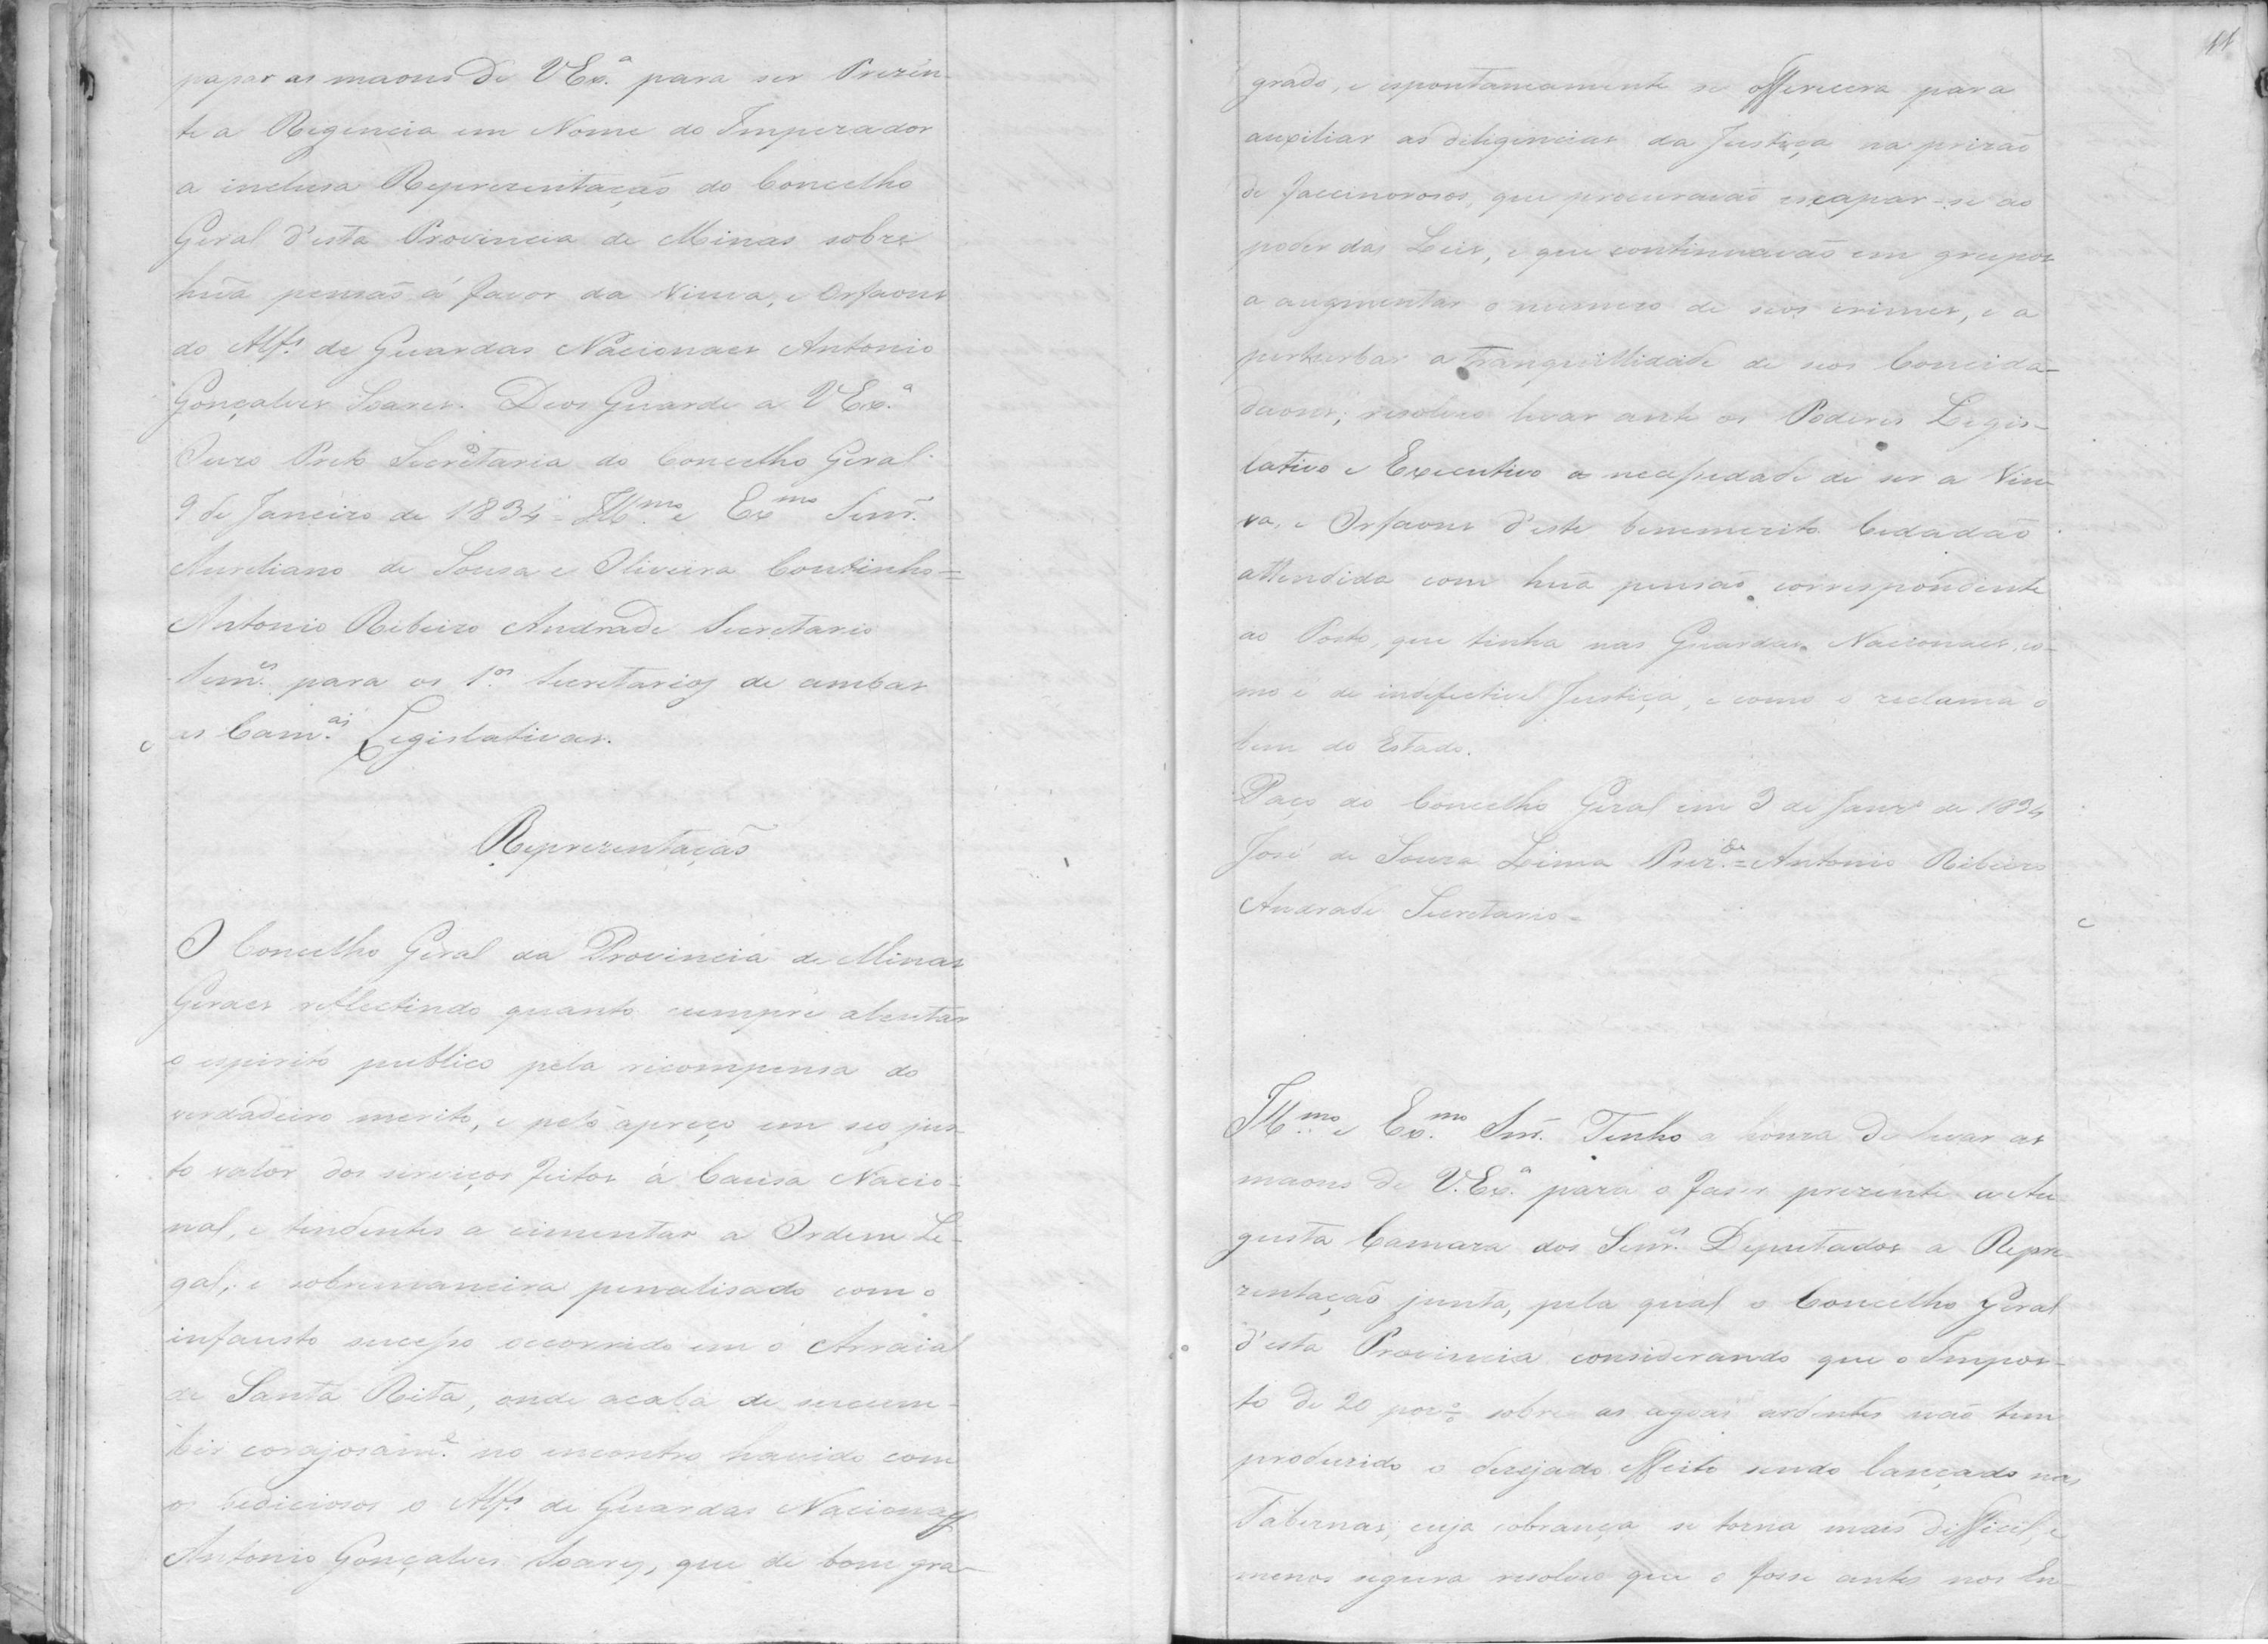 papar as maons de VEx.ª para ser Prezen-
te a Regencia em Nome do Imperador
a inclusa Reprezentação do Concelho
Geral d'esta Provincia de Minas sobre
huã pensaõ á favor da Viuva, e Orfaons
do Alf.s de Guardas Nacionaes Antonio
Gonçalves Soares. Deos Guarde a VEx.ª
Ouro Preto Secretaria do Concelho Geral
9 de Janeiro de 1834 = Ill.mo e Ex.mo Senr.
Aureliano de Sousa e Oliveira Coutinho =
Antonio Ribeiro Andrade Secretario
Sem.es para os 1.os Secretarios de ambas
as Cam.as Legislativas.
Reprezentação
O Concelho Geral da Provincia de Minas
Geraes reflectindo quanto cumpre alentar
o espirito publico pela recompensa do
verdadeiro merito, e pelo apreço em seo jus-
to valor dos serviços feitos á Causa Nacio-
nal, e tendentes a cimentar a Ordem Le-
gal, e sobremaneira penalisado com o
infausto sucesso occorrido em o Arraial
de Santa Rita, onde acaba de sucum-
bir corajosam.e no encontro havido com
os Sediciosos o Alf.s de Guardas Nacionaes
Antonio Gonçalves Soares, que de bom gra-
11
grado, e espontaneamente se offerecera para
auxiliar as diligencias da Justiça na prizaõ
de faccinorosos, que procuravaõ escapar-se ao
poder das Leis, e que continuavaõ em grupos
a augmentar o numero de seos crimes, e a
perturbar a Tranquillidade de seos Concida-
daons; resolveo levar ante os Poderes Legis-
lativo e Executivo a necessidade de ser a Viu-
va, e Orfaons d'este benemerito Cidadaõ
attendida com huã pensaõ correspondente
ao Posto, que tinha nas Guardas Nacionaes, co-
mo é de indefectivel Justiça, e como o reclama o
bem do Estado.
Paço do Concelho Geral em 9 de Janr.o de 1834
José de Souza Lima Prez.de = Antonio Ribeiro
Andrade Secretario =
Ill.mo e Ex.mo Snr. Tenho a honra de levar as
maons de V.Ex.ª para o faser prezente a Au-
gusta Camara dos Senr.es Deputados a Repre-
zentação junta, pela qual o Concelho Geral
d'esta Provincia considerando que o Impos-
to de 20 por % sobre as agoas ardentes não tem
produzido o dezejado effeito sendo lançado nas
Tabernas, cuja cobrança se torna mais difficil, e
menos segura resolveo que o fosse antes nos En-